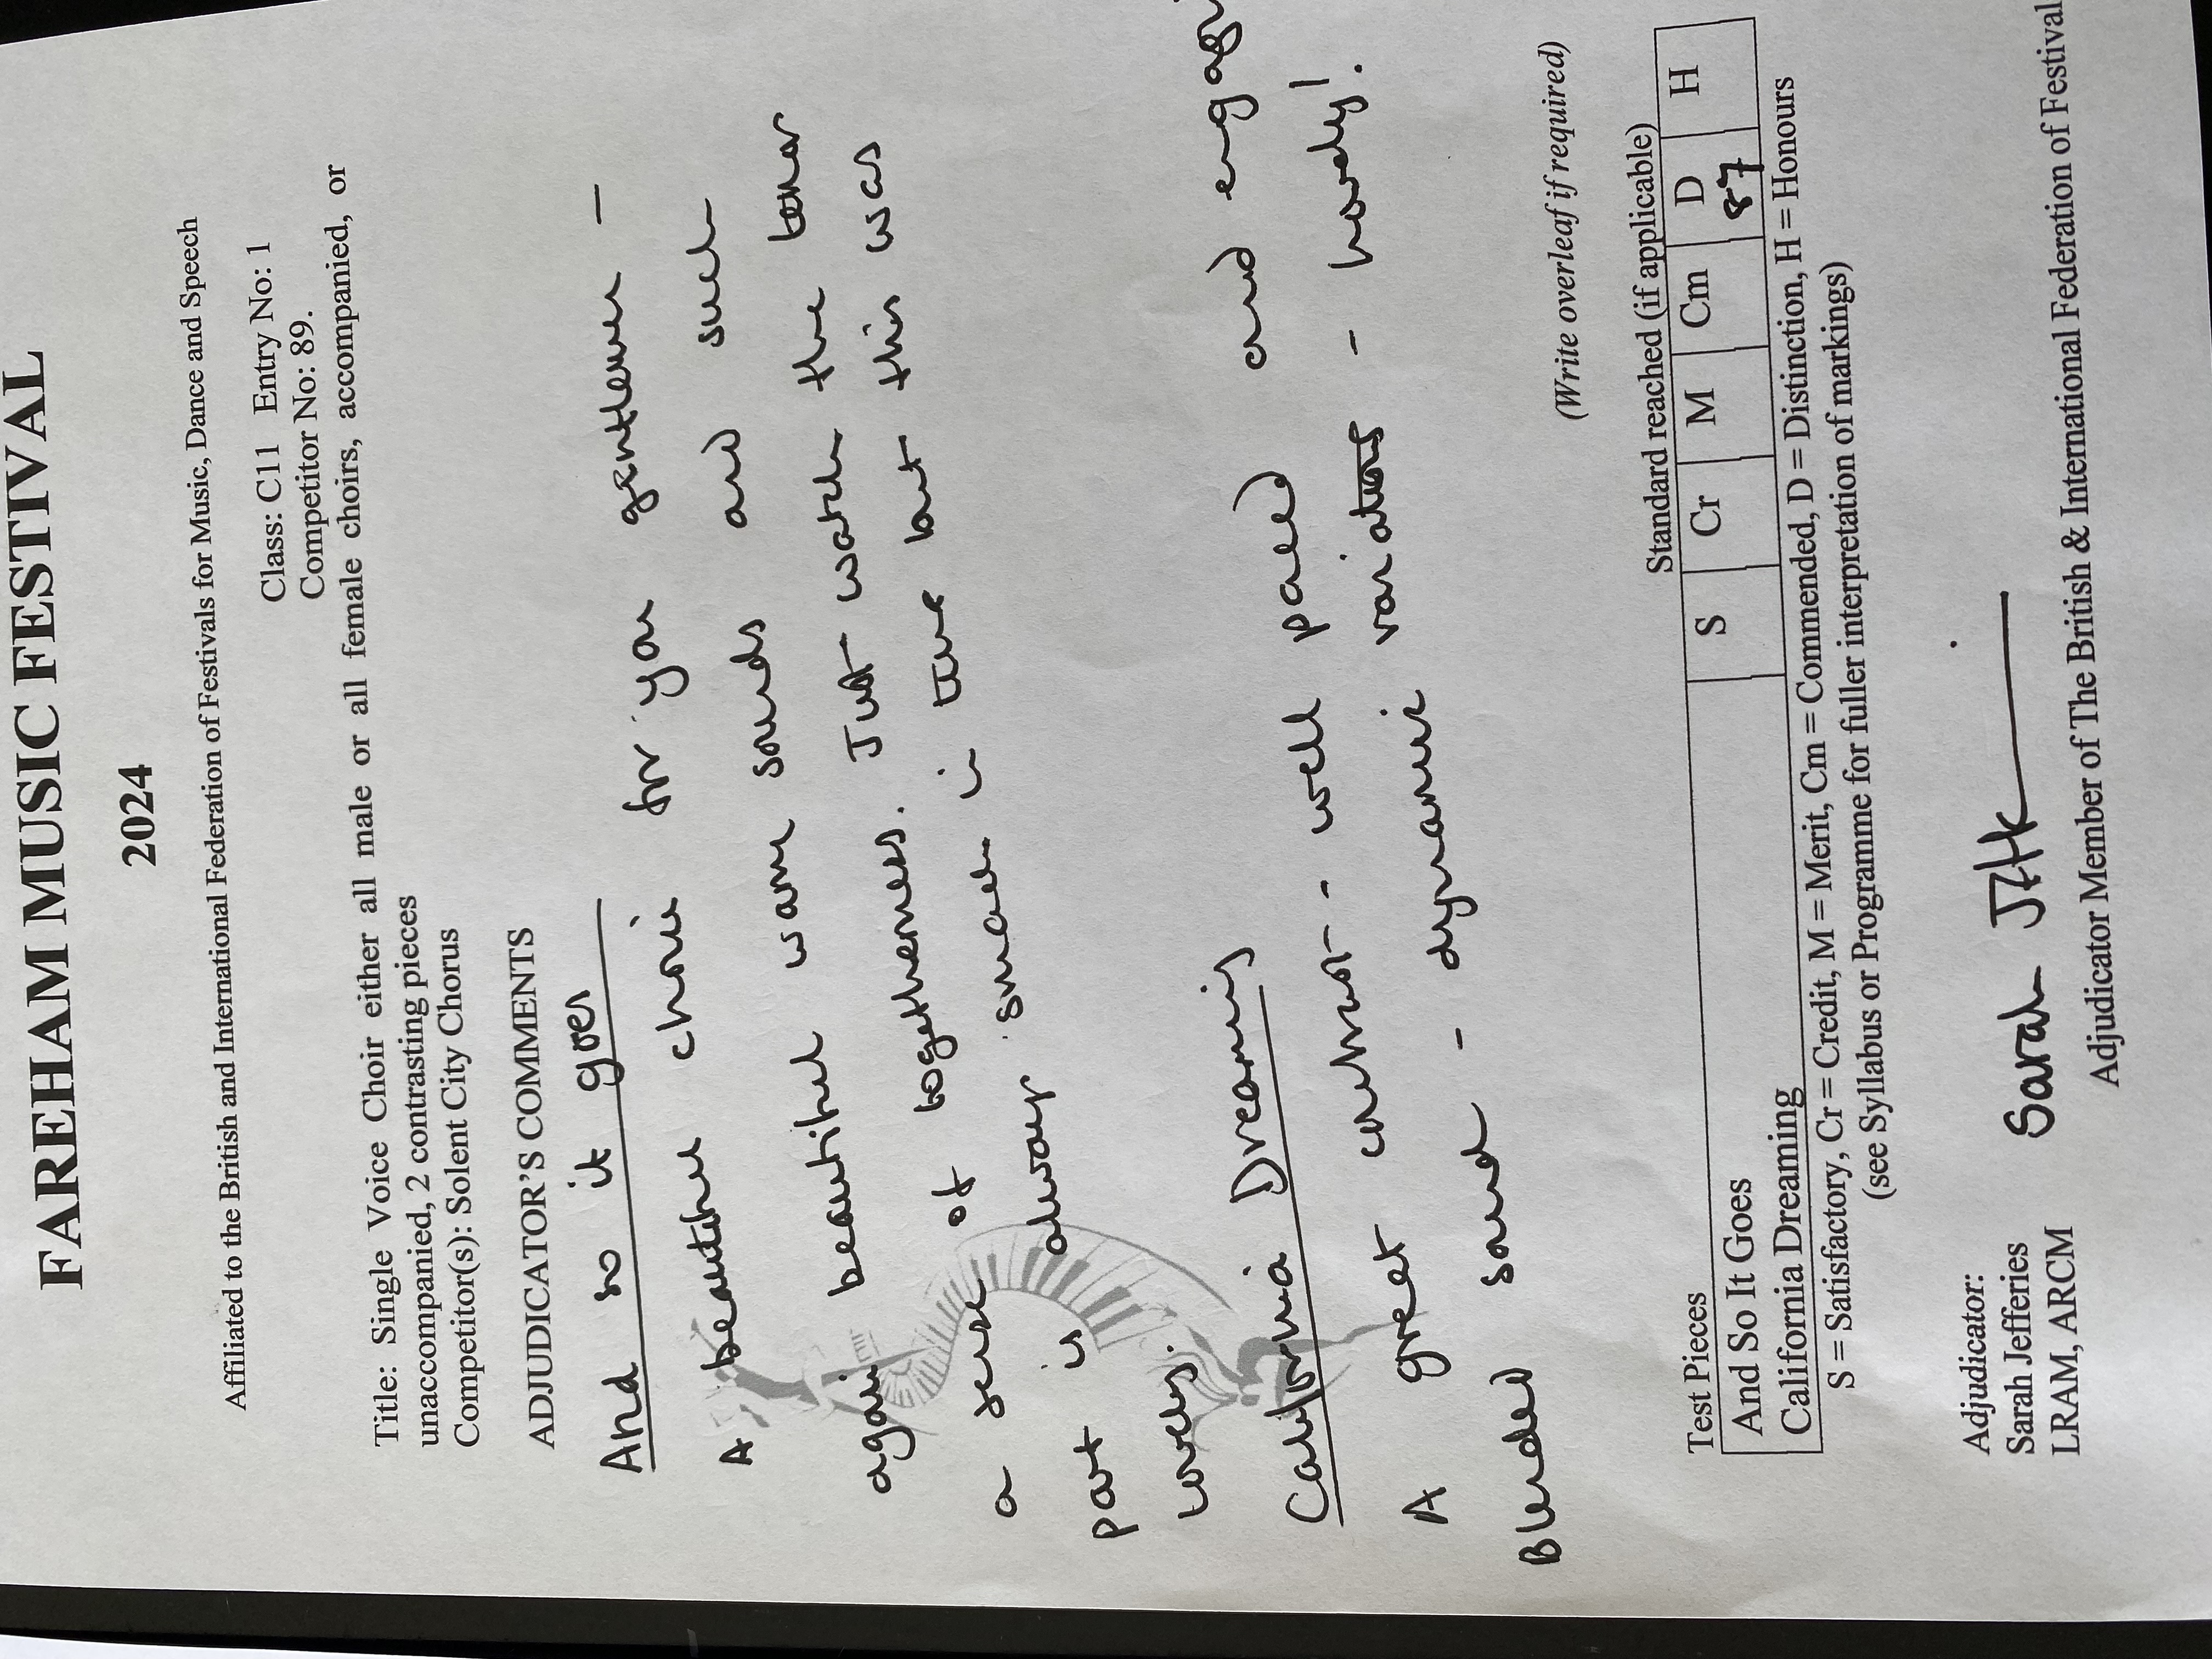 FAREHAM MUSIC FESTIVAL
2024
Affiliated to the British and International Federation of Festivals for Music, Dance and Speech
Class: C11 Entry No: 1
Competitor No: 89.
Title: Single Voice Choir either all male or all female choirs, accompanied, or
unaccompanied, 2 contrasting pieces
Competitor(s): Solent City Chorus
ADJUDICATOR'S COMMENTS
And so it goes
A beautiful choice for you gentlemen –
again beautiful warm sounds and such
a sense of togetherness. Just watch the tenor
part is always smack in tune but this was
lovely.
California Dreaming
A great contrast - well paced and engagi
Blended sound - dynamic variations - lovely!.
(Write overleaf if required)
Standard reached (if applicable)
Test Pieces S Cr M Cm D H
And So It Goes 87
California Dreaming
S = Satisfactory, Cr = Credit, M = Merit, Cm = Commended, D = Distinction, H = Honours
(see Syllabus or Programme for fuller interpretation of markings)
Adjudicator:
Sarah Jefferies
LRAM, ARCM
Sarah
Adjudicator Member of The British & International Federation of Festival